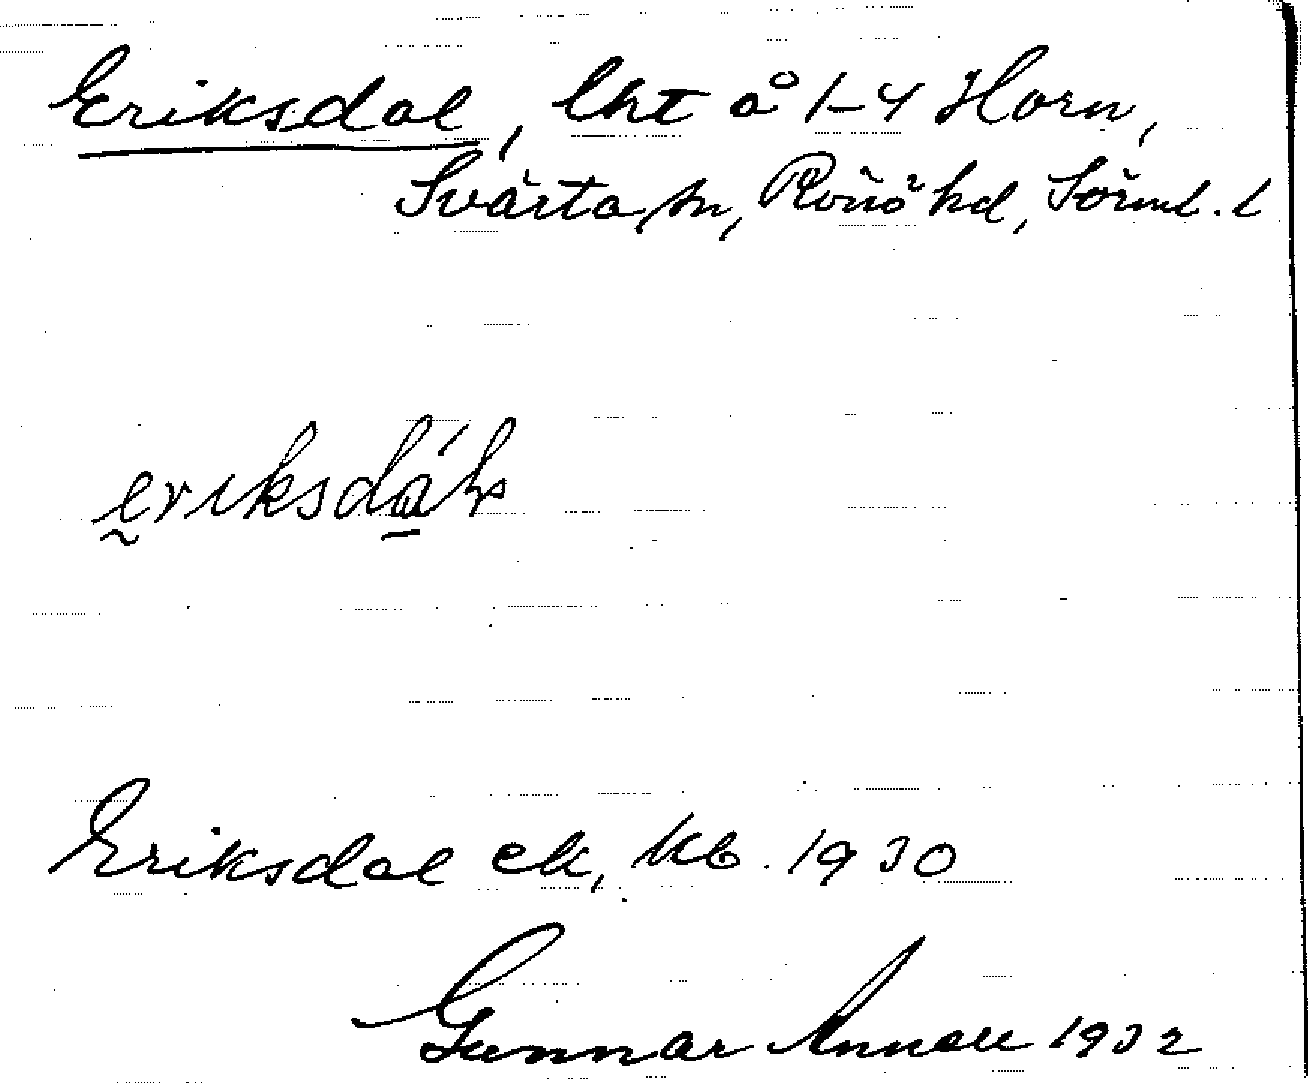 Eriksdal, lht å 1-4 Horn,
Svärta sn, Rönö hd, Sörml. l
eriksdáls
Eriksdal ek, kb. 1930
Gunnar Annell 1932